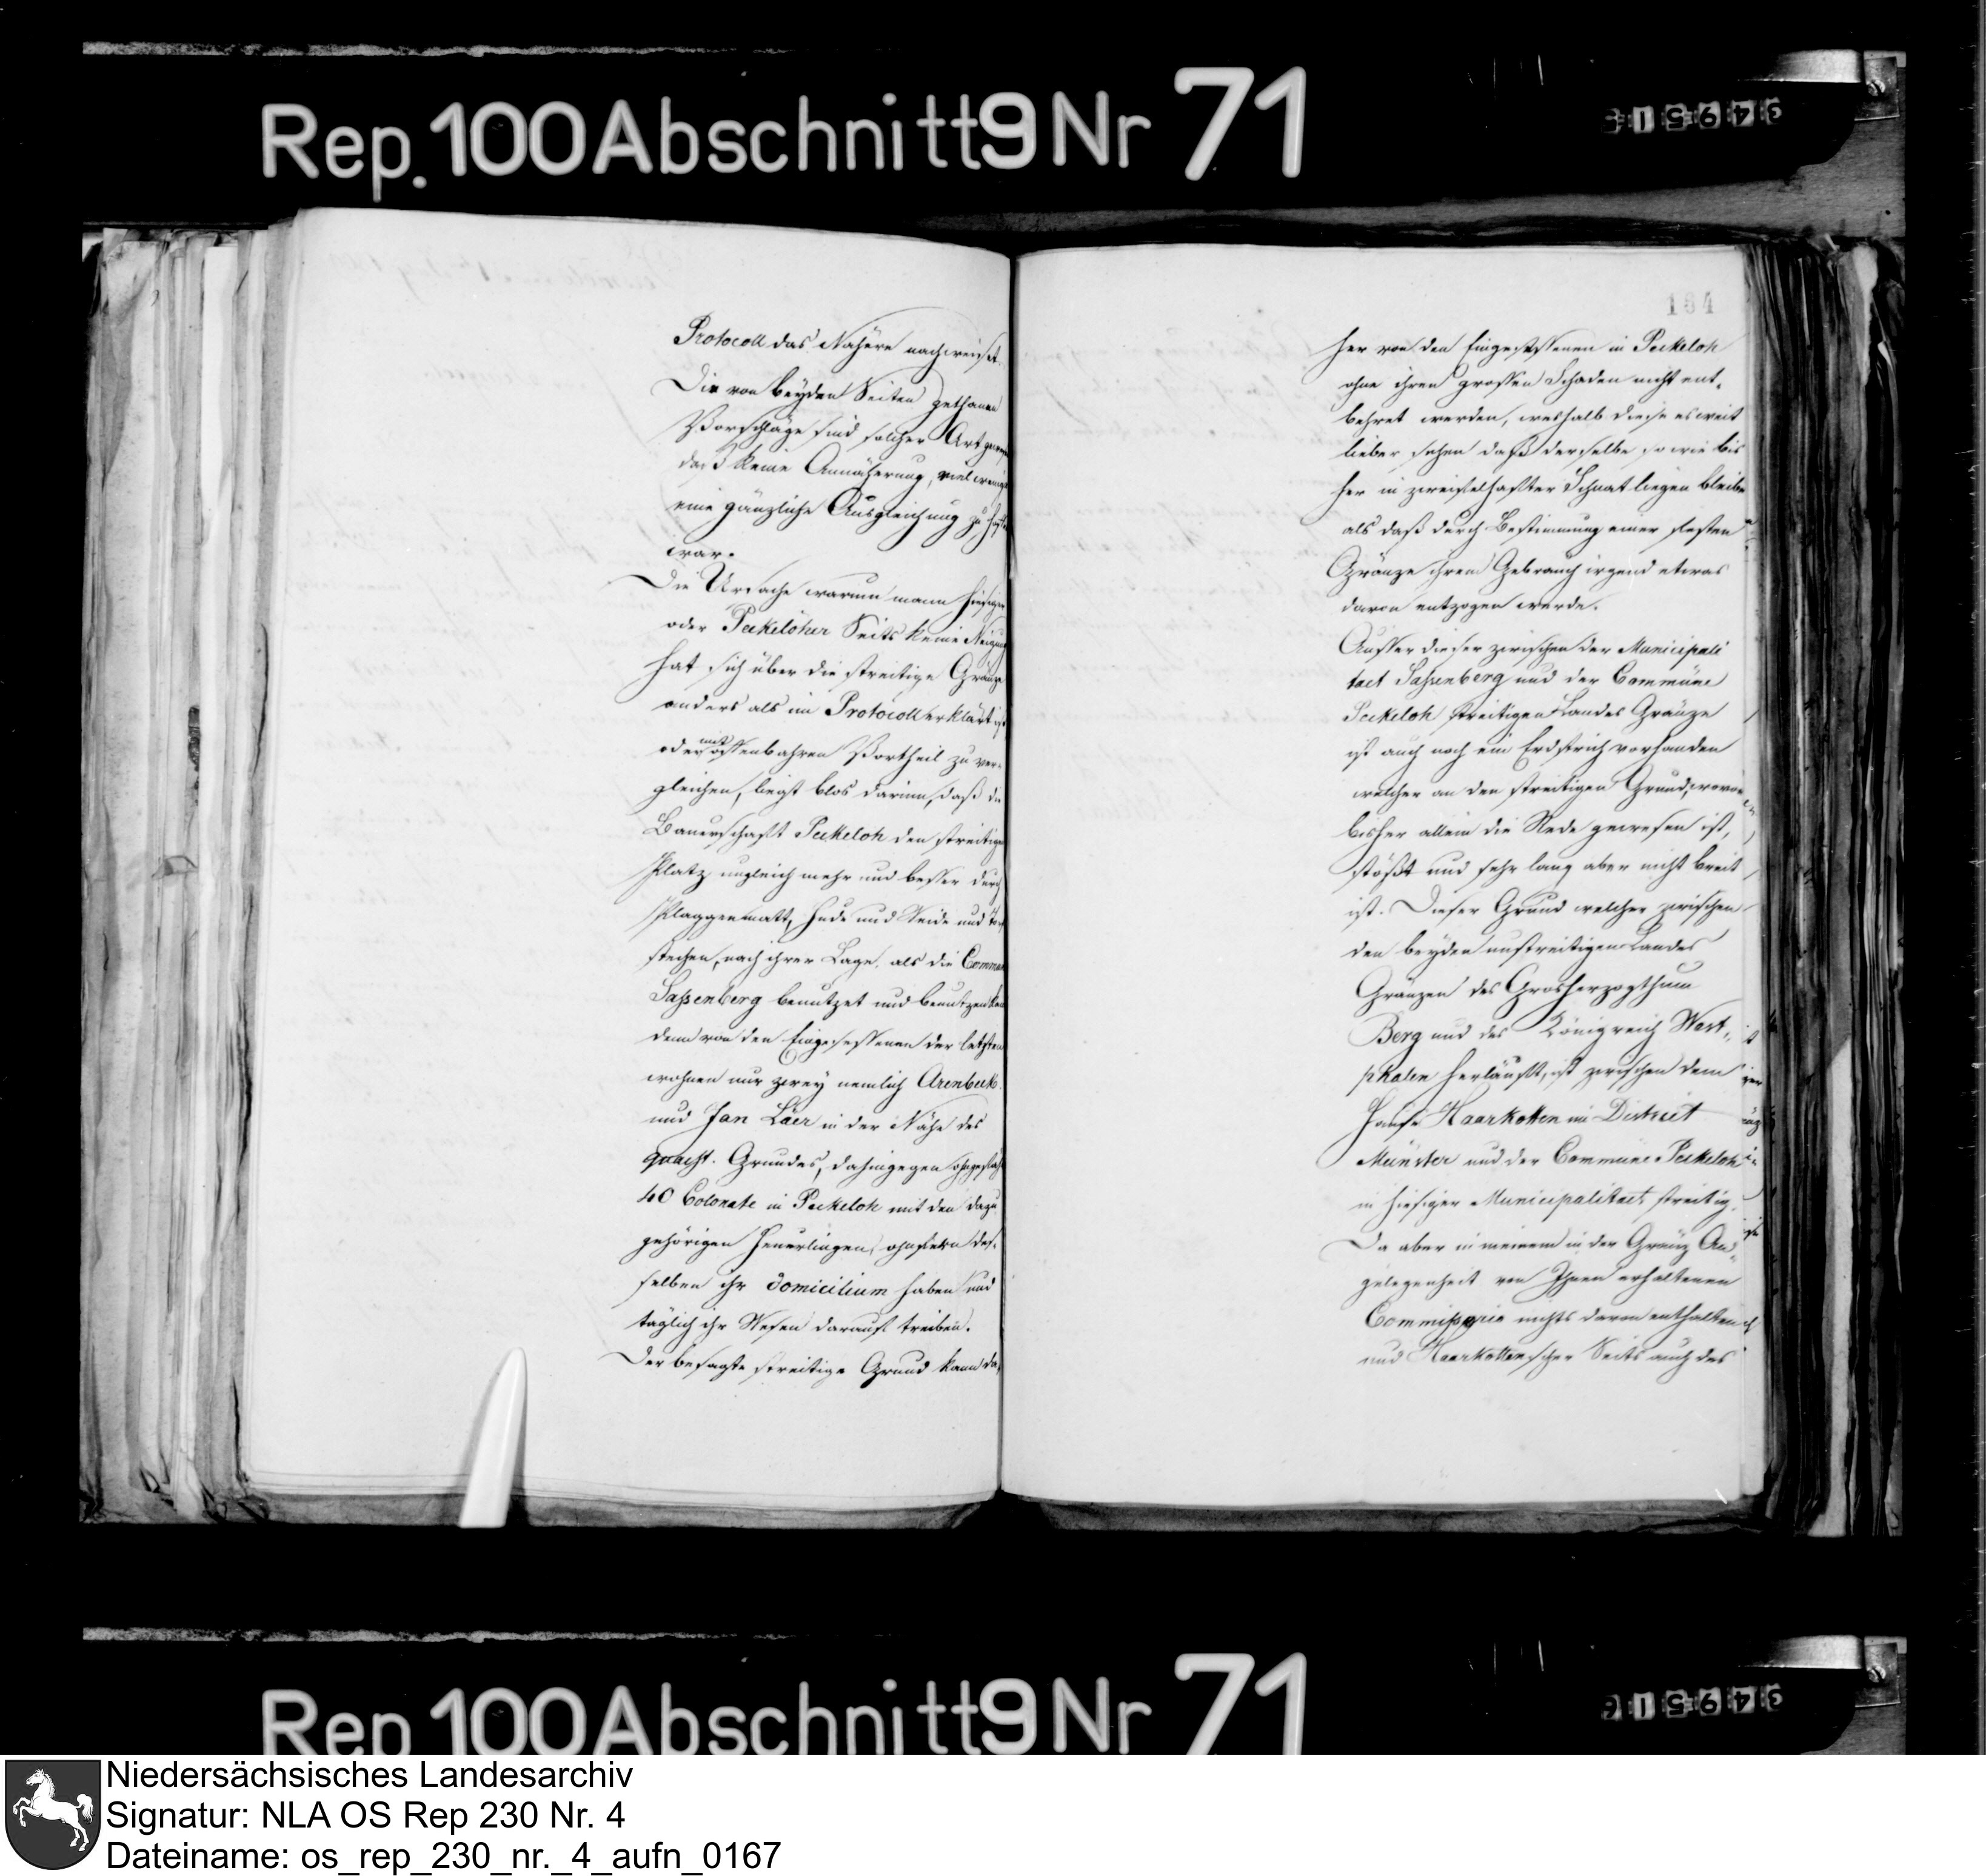 Rep. 100 Abschnitt 9 Nr 71
Protocoll das Nähere nachweiset.
Die von beyden Seiten gethanen
Vorschläge sind solcher Art
daß keine Annäherung, viel
eine gänzliche Ausgleichung zu
war.
Die Ursache warum mann hiesiger
oder Peckeloher Seits keine Neigung
hat sich über die streitige Gränze
anders als im Protocoll erklärt ist
oder mit offenbahren Vortheil zu ver-
gleichen, liegt blos darinn, daß die
Bauerschaft Peckeloh den streitigen
Platz ungleich mehr und besser durch
Plaggenmatt, Hude und Weide und
stechen, nach ihrer Lage, als die Commune
Saßenberg benutzet und benutzen kan
denn von den Eingesessenen der letztern
wohnen nur zwey nemlich Arenbeck
und Jan Läer in der Nähe des
quaest. Grundes, dahingegen ohngefähr
40 Colonate in Peckeloh mit den dazu
gehörigen Heuerlingen, ohnfern des-
selben ihr Domicilium haben und
täglich ihr Wesen darauf treiben.
Der besagte streitige Grund kann da-
184
her von den Eingesessenen in Peckeloh
ohne ihren grossen Schaden nicht ent-
behret werden, weshalb diese es weit
lieber sehen daß derselbe so wie bis
her in zweifelhafter Schnat liegen bleibe
als daß durch Bestimmung einer festen
Gränze ihrem Gebrauch irgend etwas
davon entzogen werde.
Ausser dieser zwischen der Municipali
taet Saßenberg und der Commüne
Peckeloh streitigen Landes Gränze
ist auch noch ein Erdstrich vorhanden
welcher an den streitigen Grund, wovon
bisher allein die Rede gewesen ist,
stößt und sehr lang aber nicht breit
ist. Dieser Grund welcher zwischen
den beyden unstreitigen Landes
Gränzen des Grosherzogthum
Berg und des Königreich West-
phalen herläuft, ist zwischen dem
Hause Haarkotten im District
Münster und der Commüne Peckeloh
in hiesiger Municipalitaet streitig.
Da aber in meinem in der Gränz An-
gelegenheit von Ihnen erhaltenen
Commissorio nichts davon enthalten
und Haarkottenscher Seits auch des
Rep 100 Abschnitt 9 Nr 71
Niedersächsisches Landesarchiv
Signatur: NLA OS Rep 230 Nr. 4
Dateiname: os_rep_230_nr._4_aufn_0167